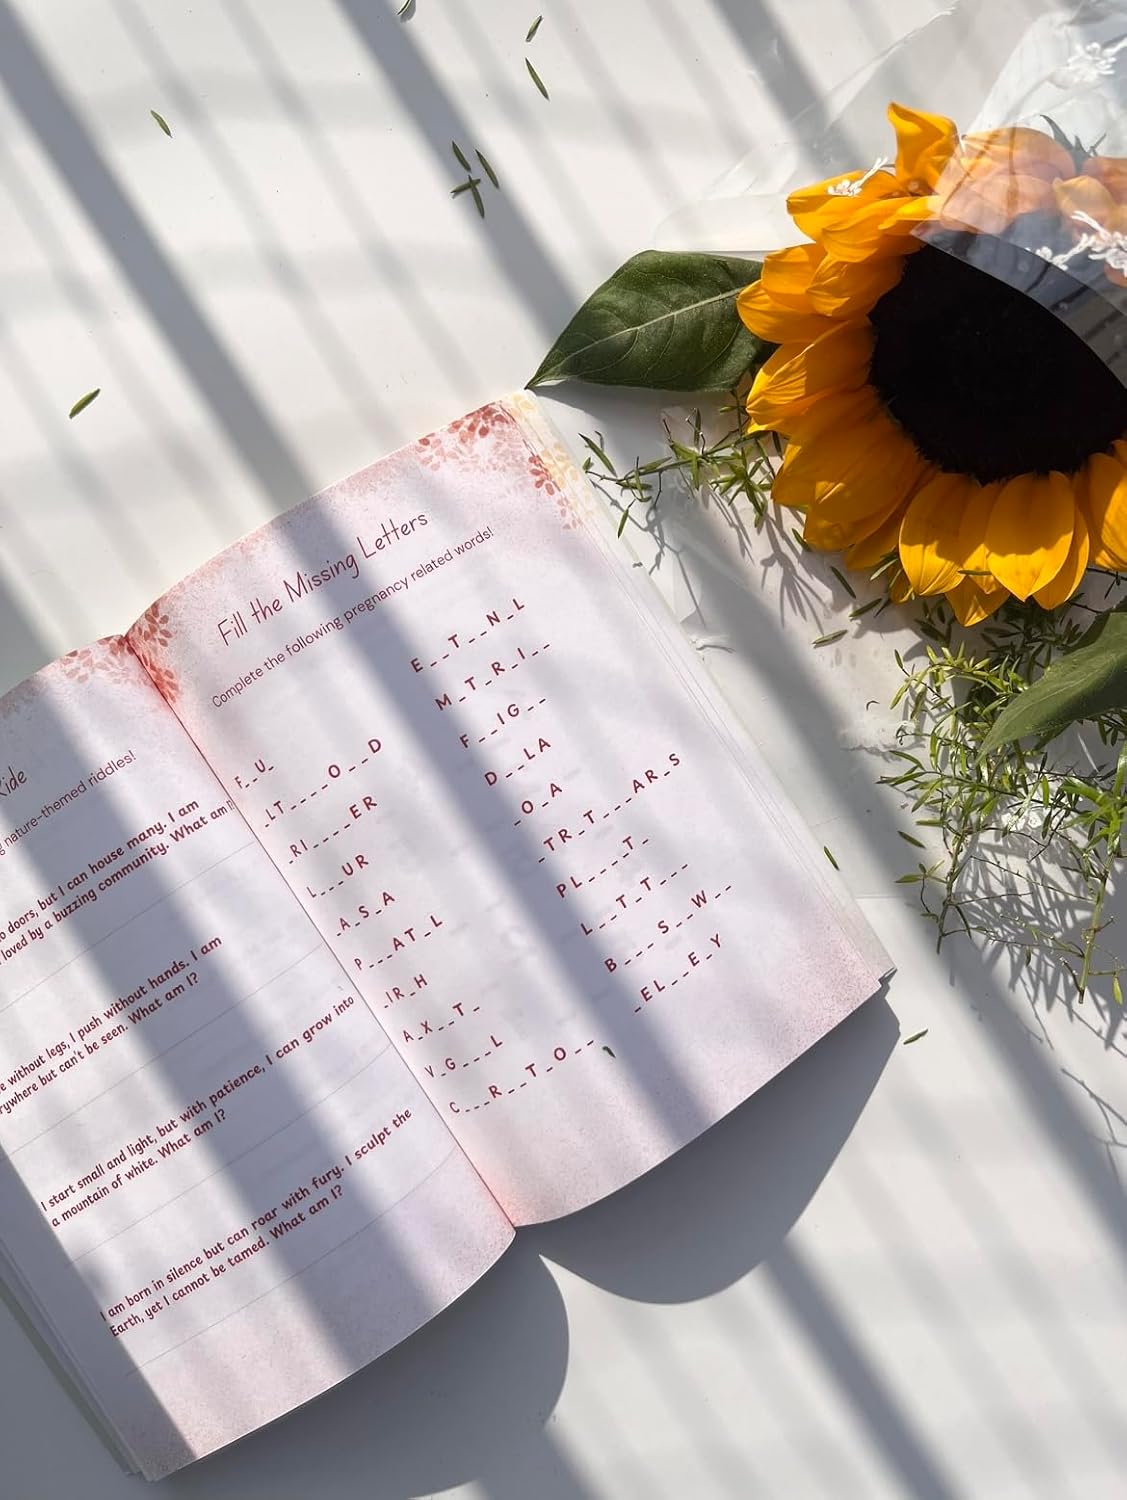 Ride
g nature-themed riddles!
o doors, but I can house many. I am
loved by a buzzing community. What am I?
e without legs, I push without hands. I am
rywhere but can't be seen. What am I?
I start small and light, but with patience, I can grow into
a mountain of white. What am I?
I am born in silence but can roar with fury. I sculpt the
Earth, yet I cannot be tamed. What am I?
Fill the Missing Letters
Complete the following pregnancy related words!
F_U_
_LT____O__D
_RI____ER
L___UR
_A_S_A
P___AT_L
_IR_H
A_X__T_
V_G___L
C___R__T_O__
E__T__N_L
M_T_R_I__
F__IG__
D__LA
_O_A
_TR_T___AR_S
PL____T_
L__T_T___
B___S__W__
_EL__E_Y